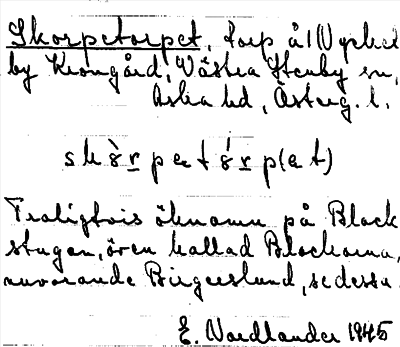 Skorpetorpet, torp å
by Krongård, Västra Stenby sn,
Aska hd, Österg. l.
Troligtvis öknamn på Block
stugan, även kallad Blockarna,
nuvarande Birgerslund, se dessa.
E. Nordlander 1945